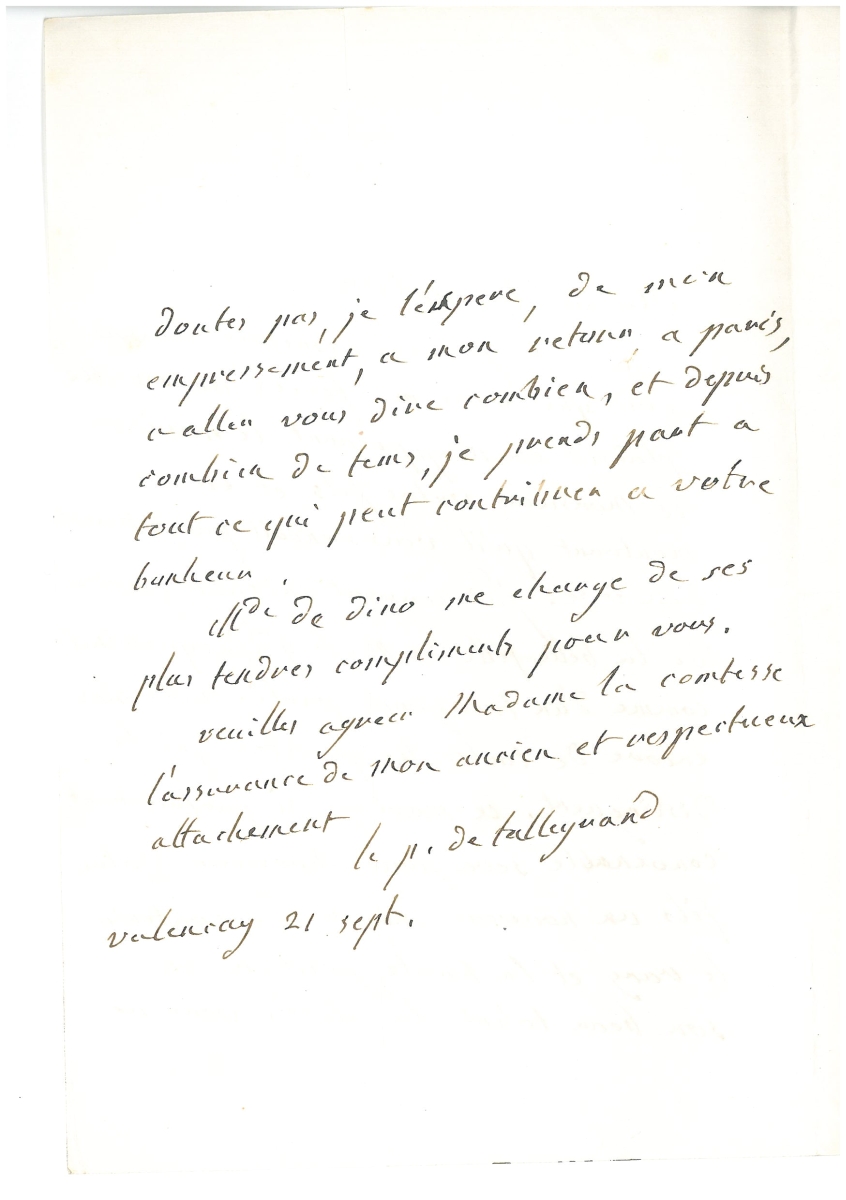 doutes pas, je l'espere, de mon
empressement, a mon retour, a paris,
a aller vous dire combien, et depuis
combien de tems, je prends part a
tout ce qui peut contribuer a votre
bonheur.
Mde de dino me charge de ses
plus tendres compliments pour vous.
veuilles agreer Madame la comtesse
l'assurance de mon ancien et respectueux
attachement
le p. de talleyrand
valencay 21 sept.